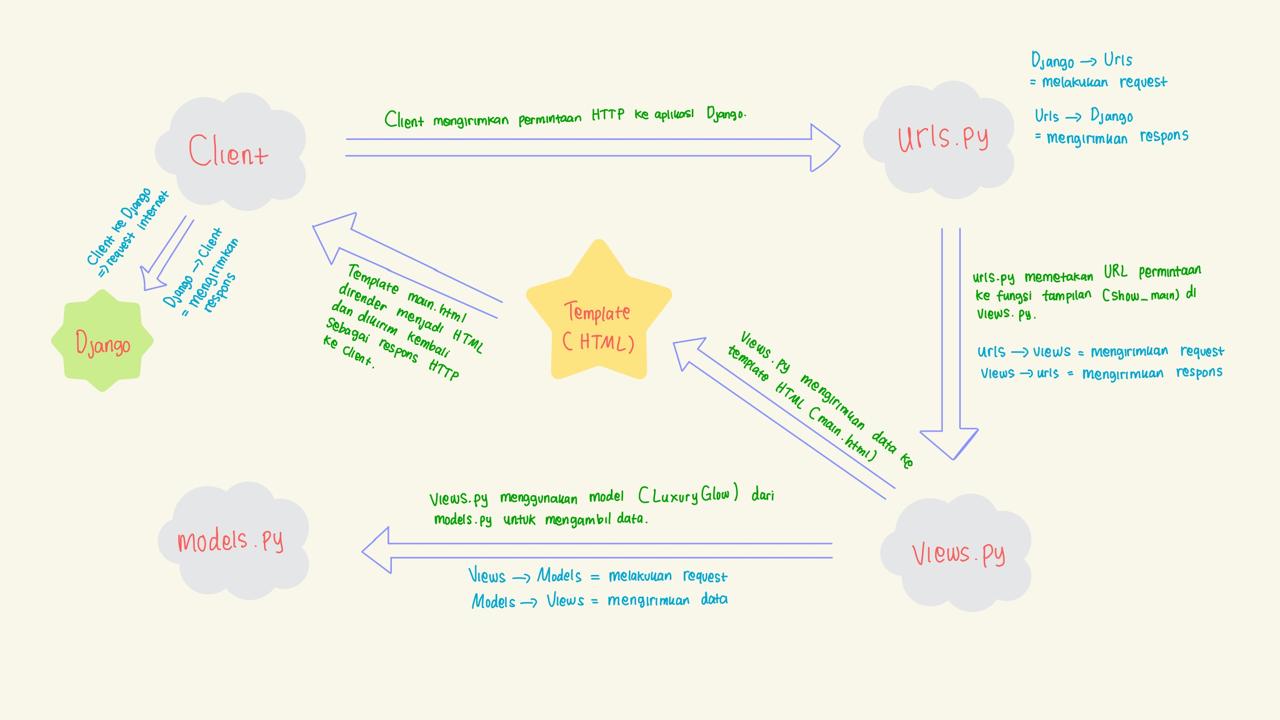 Client
Client mengirimkan permintaan HTTP ke aplikasi Django.
Urls.py
Django → Urls
= melakukan request
Urls → Django
= mengirimkan respons
Client ke Django
=> request internet
Django → Client
= mengirimkan
respons
Django
Template main.html
dirender menjadi HTML
dan dikirim kembali
Sebagai respons HTTP
ke Client.
Template
(HTML)
urls.py memetakan URL permintaan
ke fungsi tampilan (show_main) di
views.py.
Urls → views = mengirimkan request
Views → urls = mengirimkan respons
Views.py mengirimkan data ke
template HTML (main.html)
models.py
Views.py menggunakan model (LuxuryGlow) dari
models.py untuk mengambil data.
Views → Models = melakukan request
Models → Views = mengirimkan data
Views.py